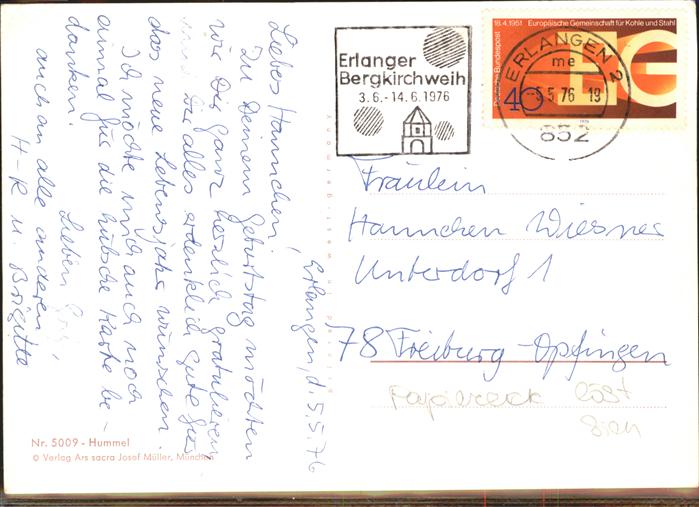 Erlangen, d. 5.5.76
Liebes Hannchen!
Zu Deinem Geburtstag möchten
wir Dir ganz herzlich gratulieren
und Dir alles erdenklich gute für
das neue Lebensjahr wünschen.
Ich möchte mich auch noch
einmal für die hübsche Karte be-
danken.
Lieben
auch an alle anderen
H-R u. Brigitte
Nr. 5009 - Hummel
© Verlag Ars sacra Josef Müller, München
Erlanger
Bergkirchweih
3.6.-14.6.1976
18.4.1951 Europäische Gemeinschaft für Kohle und Stahl
Deutsche Bundespost
40
EG
ERLANGEN 2
me
-5.5.76 19
852
Fräulein
Hannchen Wiesner
Unterdorf 1
78 Freiburg-Opfingen
Papiereck löst
sich